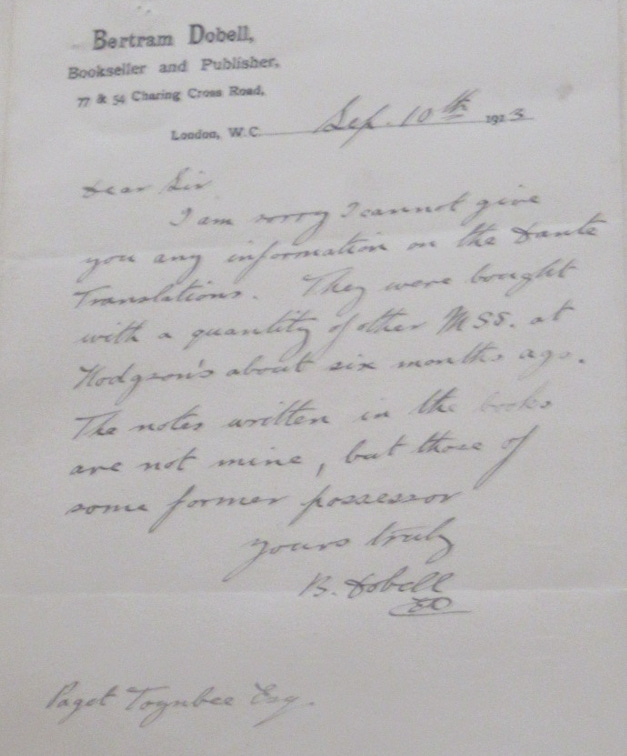 Bertram Dobell,
Bookseller and Publisher,
77 & 54 Charing Cross Road,
London, W.C. Sep. 10th 1913
Dear Sir
I am sorry I cannot give
you any information on the Dante
Translations. They were bought
with a quantity of other MSS. at
Hodgson's about six months ago.
The notes written in the books
are not mine, but those of
some former possessor
yours truly
B. Dobell
Paget Toynbee Esq.